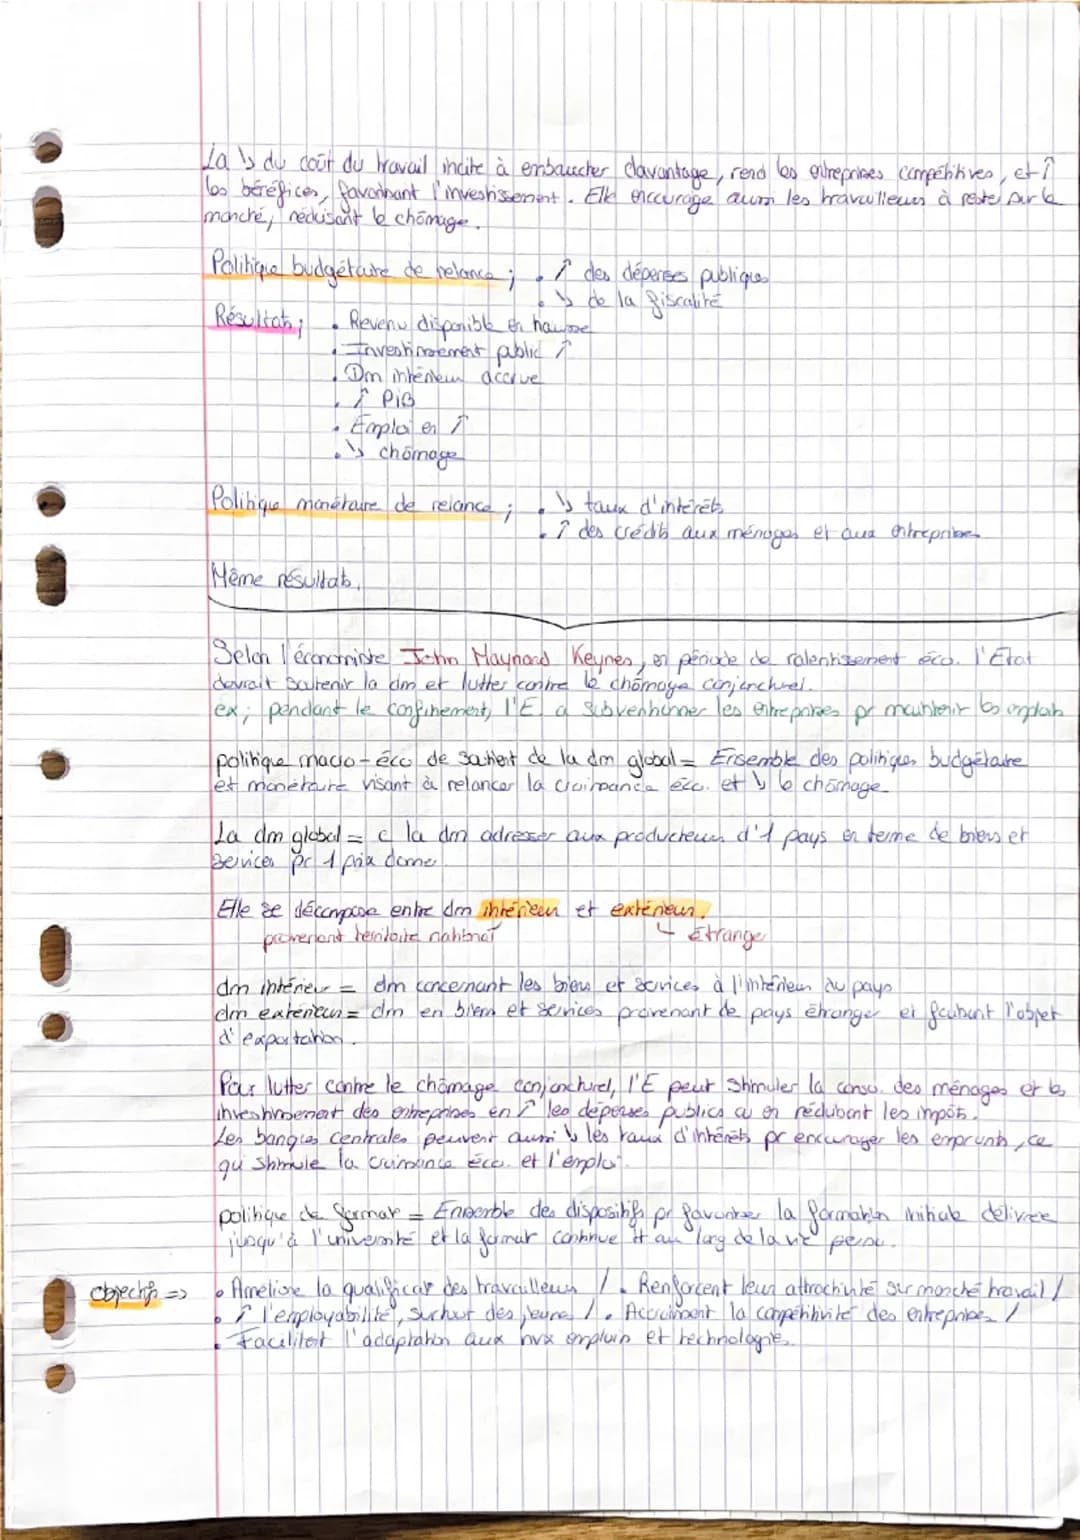 La ↘ du coût du travail incite à embaucher davantage, rend les entreprises compétitives, et ↑
les bénéfices, favorisant l'investissement. Elle encourage aussi les travailleurs à rester sur le
marché, réduisant le chômage.
Politique budgétaire de relance ; • ↑ des dépenses publiques
• ↘ de la fiscalité
Résultats ; • Revenu disponible en hausse
• Investissement public ↑
• Dm intérieur accrue
• ↑ PIB
• Emploi en ↑
• ↘ chômage
Politique monétaire de relance ; • ↘ taux d'intérêts
• ↑ des crédits aux ménages et aux entreprises
Même résultats.
Selon l'économiste John Maynard Keynes, en période de ralentissement éco. l'Etat
devrait soutenir la dm et lutter contre le chômage conjoncturel.
ex ; pendant le confinement, l'E a subventionner les entreprises pr maintenir les emplois
politique macro-éco de soutient de la dm global = Ensemble des politiques budgétaire
et monétaire visant à relancer la croissance éco. et ↘ le chômage
La dm global = c la dm adresser aux producteurs d'1 pays en terme de biens et
services pr 1 prix donné.
Elle se décompose entre dm intérieur et extérieur.
provenant territoire national ↳ Etranger
dm intérieur = dm concernant les biens et services à l'intérieur du pays
dm extérieur = dm en biens et services provenant de pays étranger et faisant l'objet
d'exportation.
Pour lutter contre le chômage conjoncturel, l'E peut stimuler la conso. des ménages et les
investissement des entreprises en ↑ les dépenses publics ou en réduisant les impôts.
Les banques centrales peuvent aussi ↘ les taux d'intérêts pr encourager les emprunts, ce
qui stimule la croissance éco. et l'emploi.
politique de format° = Ensemble des dispositifs pr favoriser la formation initiale délivrée
jusqu'à l'université et la format° continue tt au long de la vie perso.
Objectifs => • Améliore la qualificat° des travailleurs / • Renforcent leur attractivité sur marché travail /
• ↑ l'employabilité, surtout des jeunes / • Accroissent la compétitivité des entreprises /
• Facilitent l'adaptation aux nvx emplois et technologies.